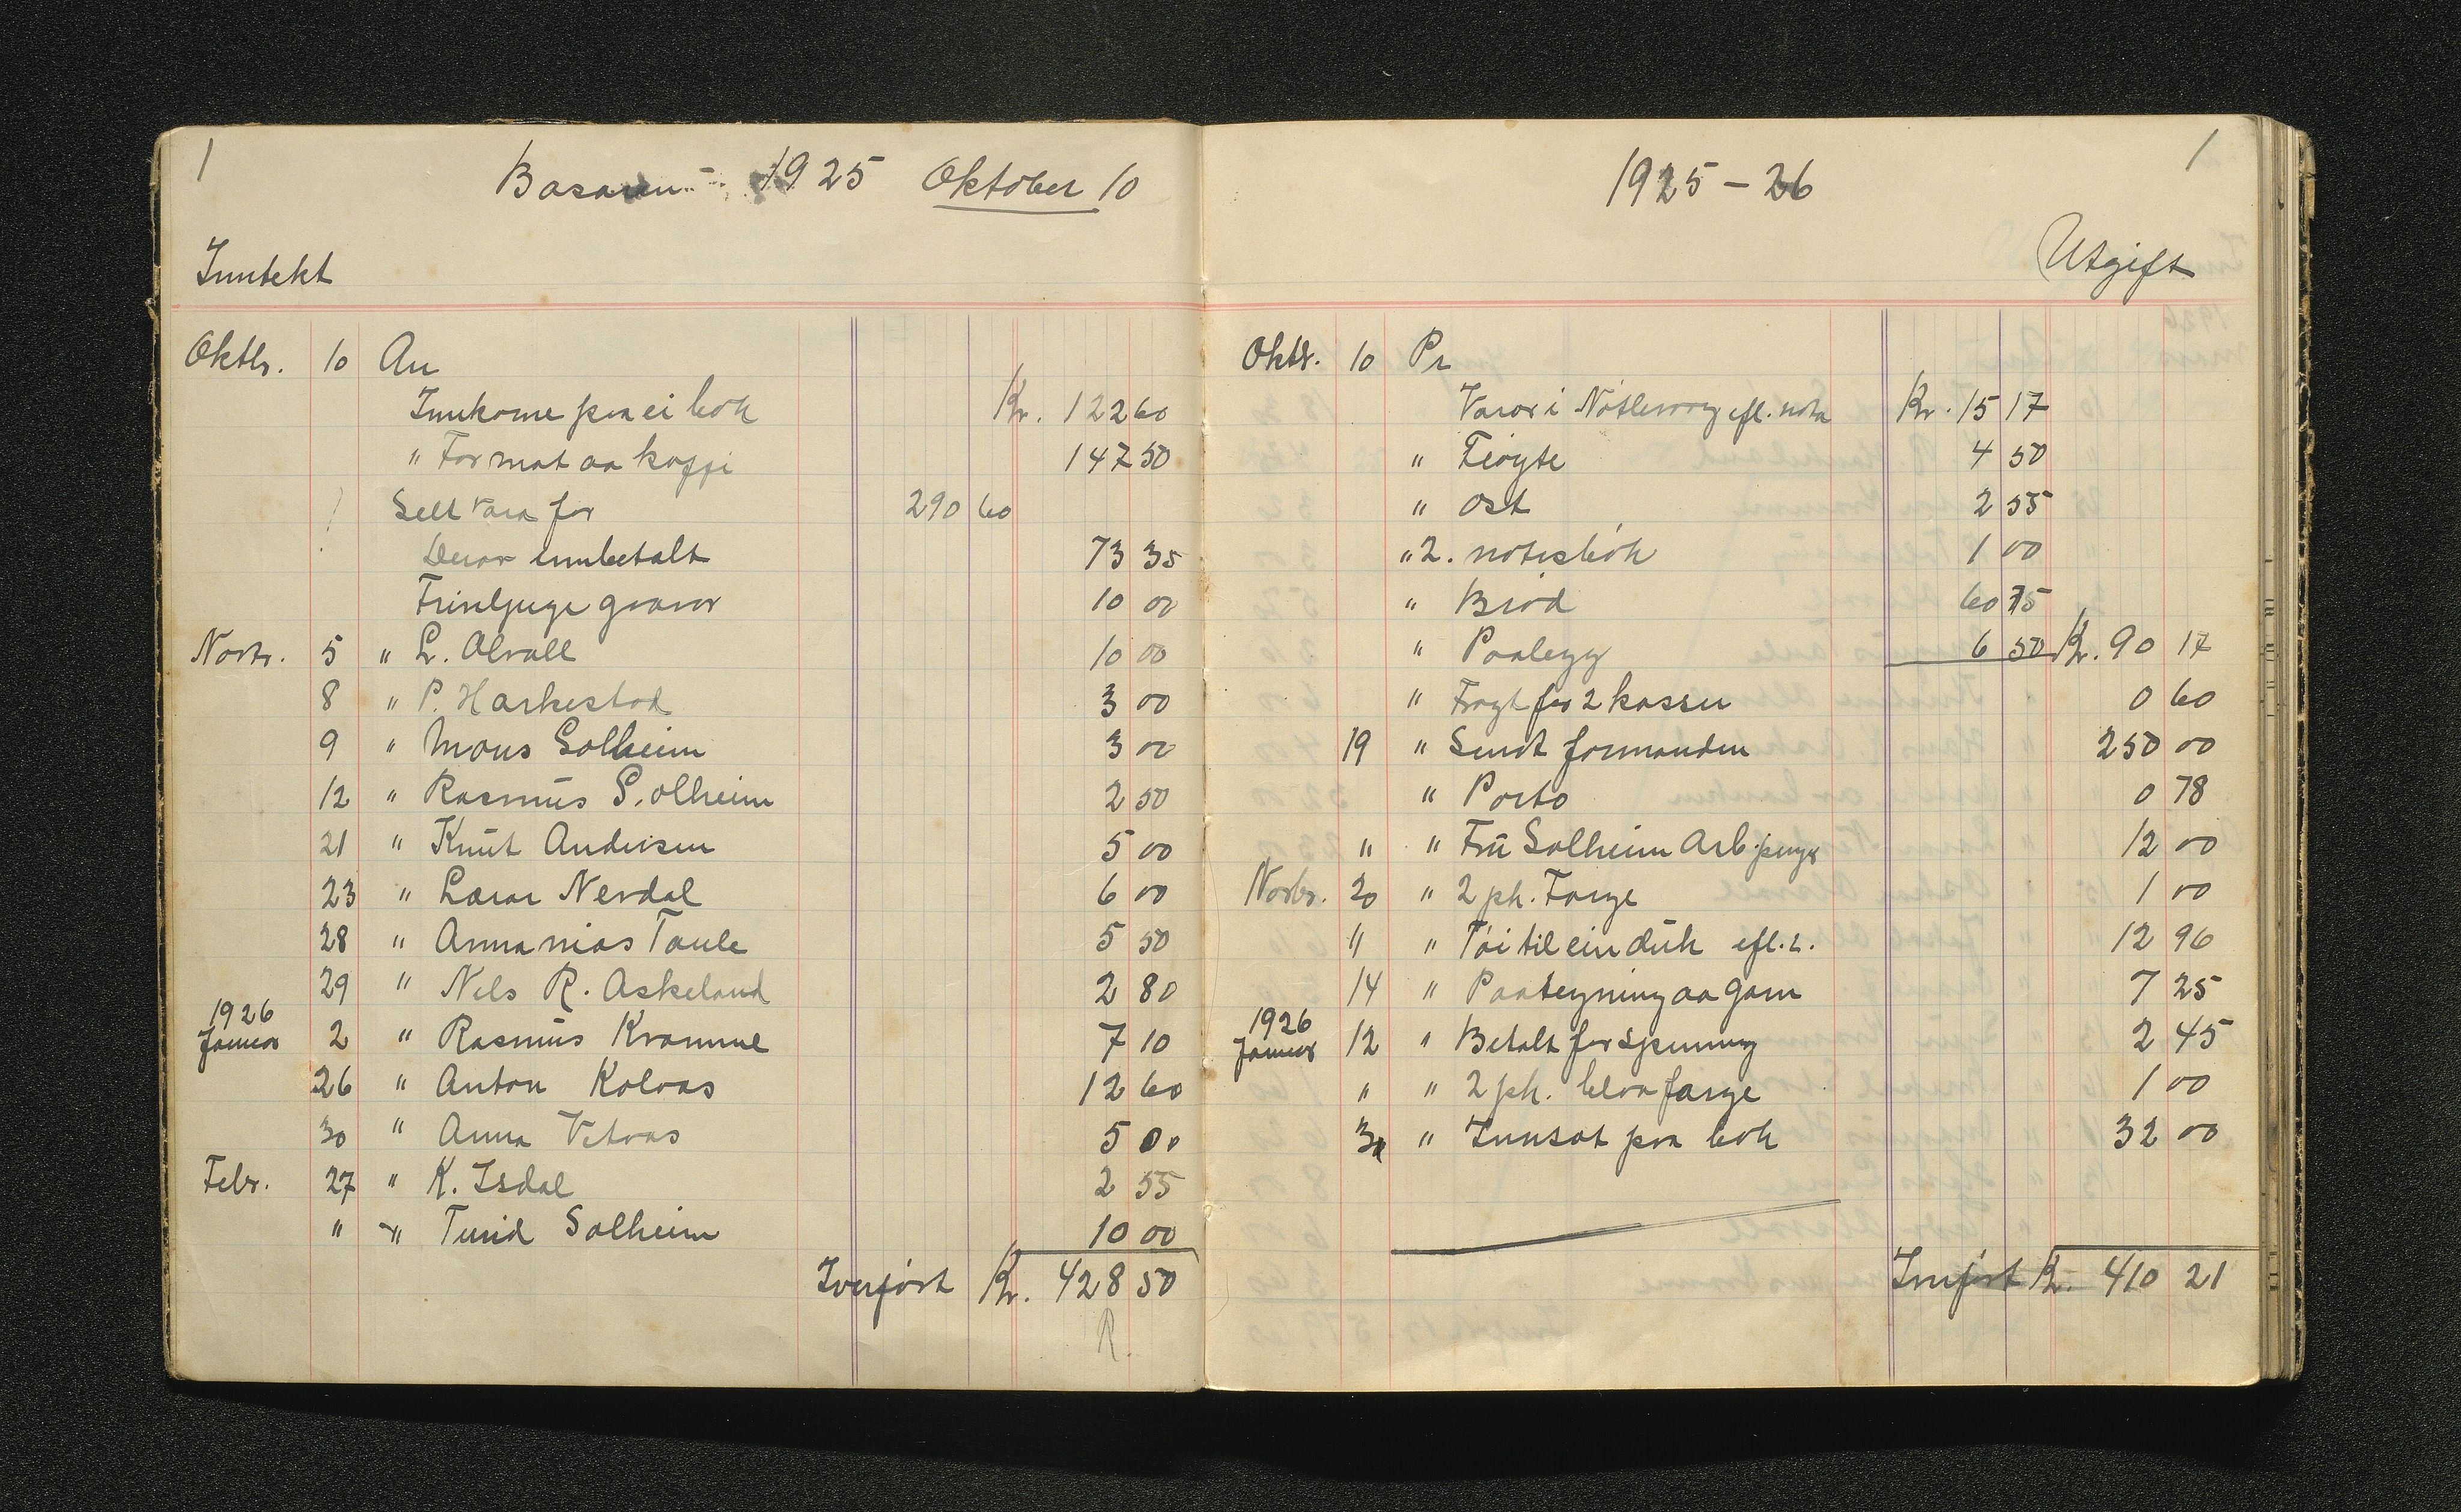 1
Basaren - 1925 Oktober 10
Inntekt
Oktbr. 10 An
Innkome paa ei bok Kr. 122 60
" For mat aa kaffi 147 50
Selt vara for 290 60
Derav innbetalt 73 35
Friviljuge gaavor 10 00
Novbr. 5 " L. Alvall 10 00
8 " P. Harkestad 3 00
9 " Mons Solheim 3 00
12 " Rasmus S. olheim 2 50
21 " Knut Andersen 5 00
23 " Lærar Nerdal 6 00
28 " Annanias Taule 5 50
29 " Nils R. Askeland 2 80
1926
Januar 2 " Rasmus Kramme 7 10
26 " Anton Kolaas 12 60
30 " Anna Vetaas 5 00
Febr. 27 " K. Isdal 2 55
" " Turid Solheim 10 00
Iverført Kr. 428 50
R.
1925-26
1
Utgift
Oktbr. 10 Pr
Varor i efl. nota Kr. 15 17
" Fløyte 4 50
" Ost 2 55
" 2. notisbøk 1 00
" Brød 60 75
" Paalegg 6 50 Kr. 90 17
" Fragt for 2 kasser 0 60
19 " Sendt formanden 250 00
" Porto 0 78
" " Fru Solheim Arb. penge 12 00
Novbr. 20 " 2 pk. Farge 1 00
" " Tøi til ein duk efl. r. 12 96
14 " Paategning aa garn 7 25
1926
Januar 12 " Betalt for spinning 2 45
" " 2 pk. blaa farge 1 00
30 " Innsat paa bok 32 00
Innført Kr. 410 21